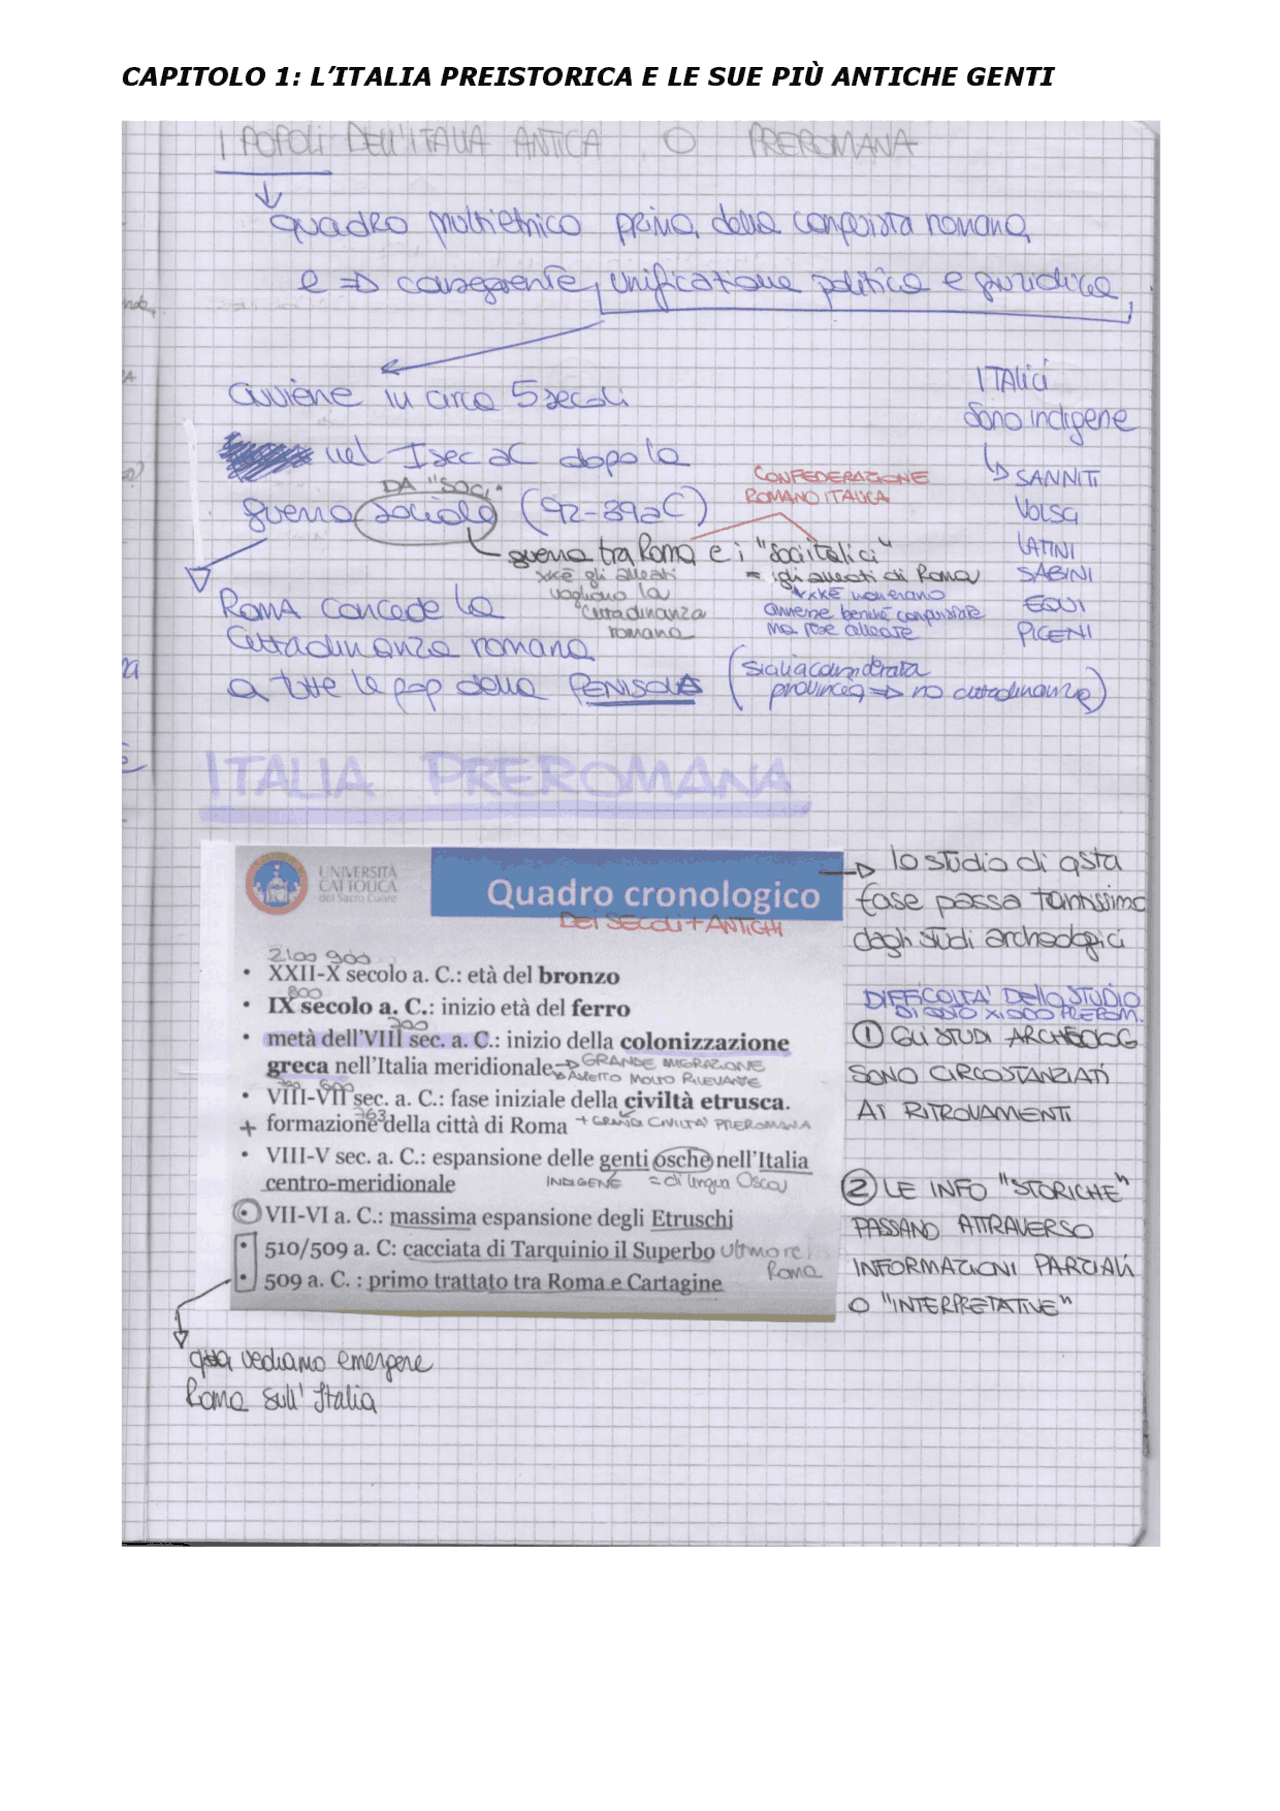 CAPITOLO 1: L’ITALIA PREISTORICA E LE SUE PIÙ ANTICHE GENTI
I POPOLI DELL'ITALIA ANTICA O PREROMANA
quadro multietnico prima della conquista romana,
e => conseguente, unificazione politica e giuridica
avviene in circa 5 secoli
nel I sec aC dopo la
DA "SOCI"
guerra sociale (92-89aC)
CONFEDERAZIONE
ROMANO ITALICA
guerra tra Roma e i "soci italici"
xkè gli alleati
vogliono la
cittadinanza
romana
= gli alleati di Roma
xkè non erano
annesse benchè conquistate
ma rese alleate
ITALICI
sono indigene
SANNITI
VOLSCI
LATINI
SABINI
EQUI
PICENI
ROMA concede la
cittadinanza romana
a tutte le pop della PENISOLA
(Sicilia considerata
provincia => no cittadinanza)
ITALIA PREROMANA
UNIVERSITÀ
CATTOLICA
del Sacro Cuore
Quadro cronologico
DEI SECOLI + ANTICHI
2100 900
• XXII-X secolo a. C.: età del bronzo
800
• IX secolo a. C.: inizio età del ferro
700
• metà dell'VIII sec. a. C.: inizio della colonizzazione
greca nell'Italia meridionale → GRANDE MIGRAZIONE
→ ASPETTO MOLTO RILEVANTE
700 600
• VIII-VII sec. a. C.: fase iniziale della civiltà etrusca.
763
+ formazione della città di Roma + GRANDE CIVILTA' PREROMANA
• VIII-V sec. a. C.: espansione delle genti osche nell'Italia
centro-meridionale INDIGENE = di lingua Osca
• VII-VI a. C.: massima espansione degli Etruschi
• 510/509 a. C: cacciata di Tarquinio il Superbo ultimo re
Roma
• 509 a. C. : primo trattato tra Roma e Cartagine
qua vediamo emergere
Roma sull'Italia
lo studio di qsta
fase passa tantissimo
dagli studi archeologici
DIFFICOLTA' DELLO STUDIO
DI QSTO XIODO PREROM.
① GLI STUDI ARCHEOLOG
SONO CIRCOSTANZIATI
AI RITROVAMENTI
② LE INFO "STORICHE"
PASSANO ATTRAVERSO
INFORMAZIONI PARZIALI
O "INTERPRETATIVE"